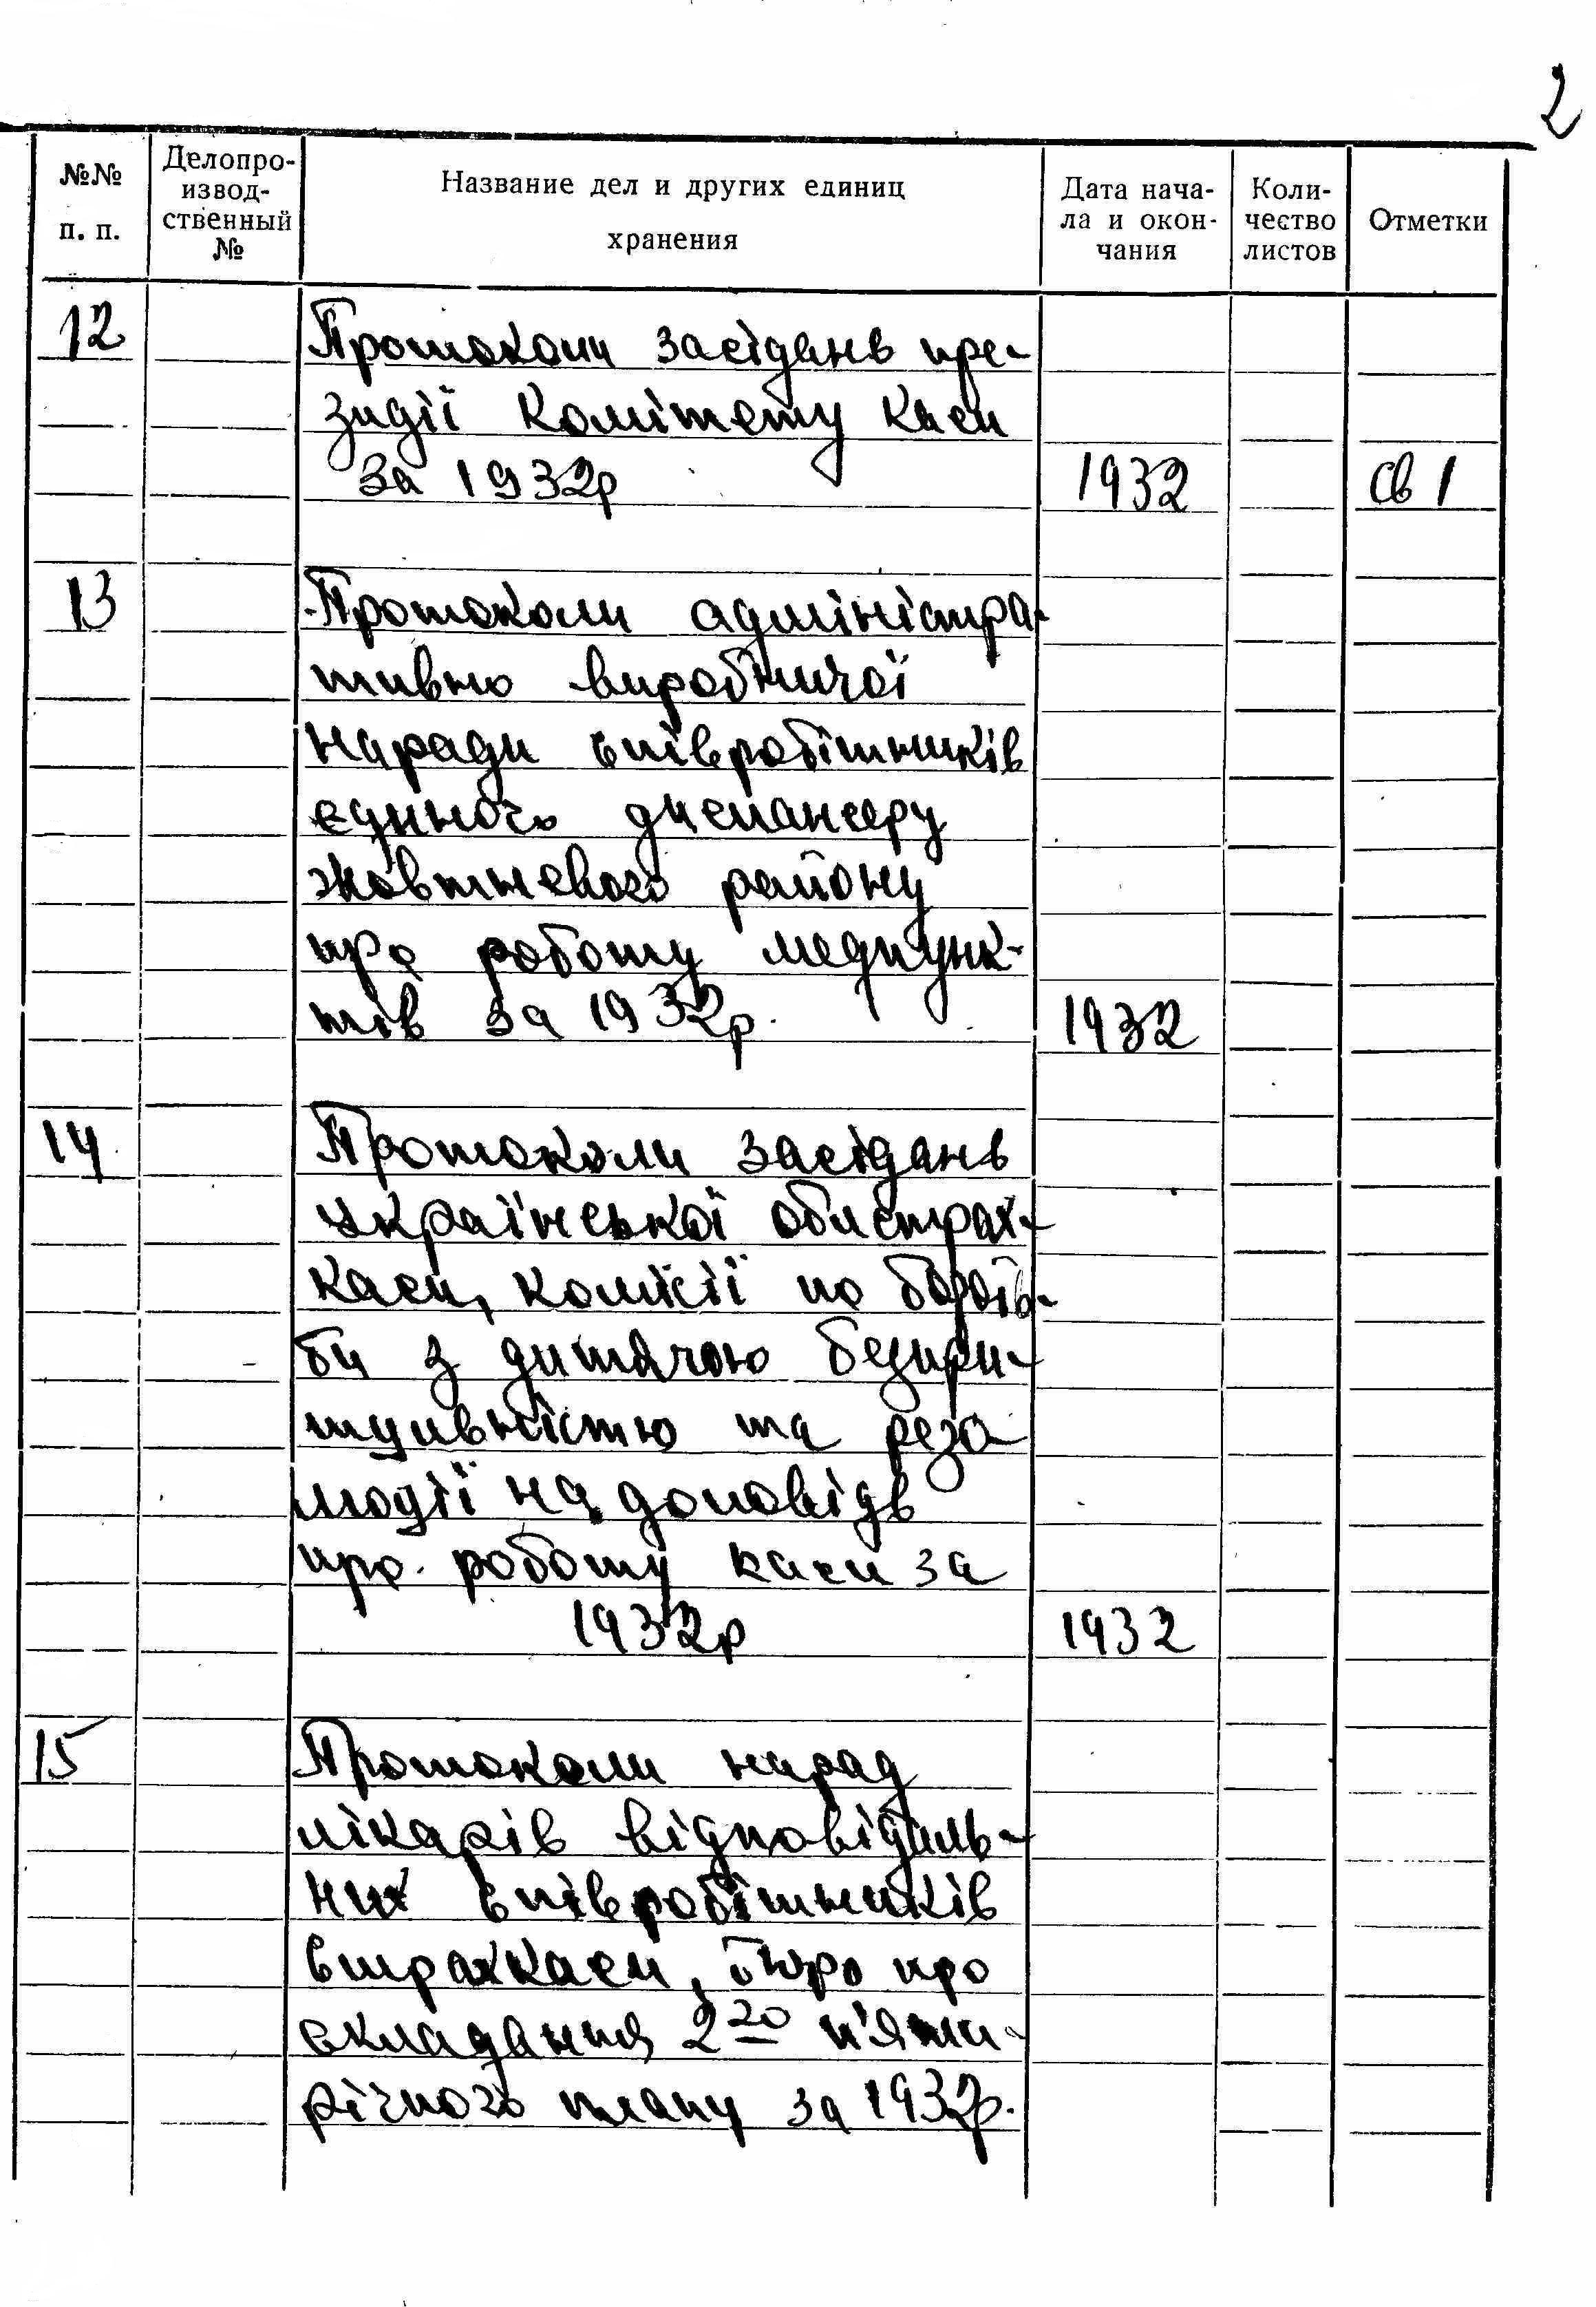 2
№№ п. п.
Делопро-
извод-
ственный
№
Название дел и других единиц
хранения
Дата нача-
ла и окон-
чания
Коли-
чество
листов
Отметки
12
Протоколи засідань пре-
зидії Комітету каси
за 1932р 1932 св 1
13
Протоколи адміністра-
тивно виробничої
наради співробітників
єдиного диспансеру
жовтневого району
про роботу медпунк-
тів за 1932р. 1932
14
Протоколи засідань
української облстрах-
каси, комісії по бороть-
би з дитячою безпри-
тульністю та резо-
люції на доповідь
про роботу каси за
1932р 1932
15
Протоколи нарад
лікарів відповідаль-
них співробітників
страхкаси, бюро про
складання 2го п'яти-
річного плану за 1932р.